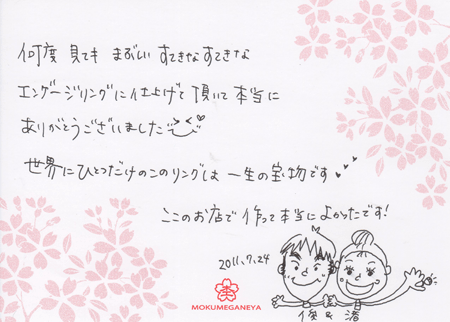 何度 見ても まぶしい すてきなすてきな
エンゲージリングに仕上げて頂いて本当に
ありがとうございました
世界にひとつだけのこのリングは 一生の宝物です
このお店で 作って本当によかったです!
2011.7.24
MOKUMEGANEYA
俊 & 渚